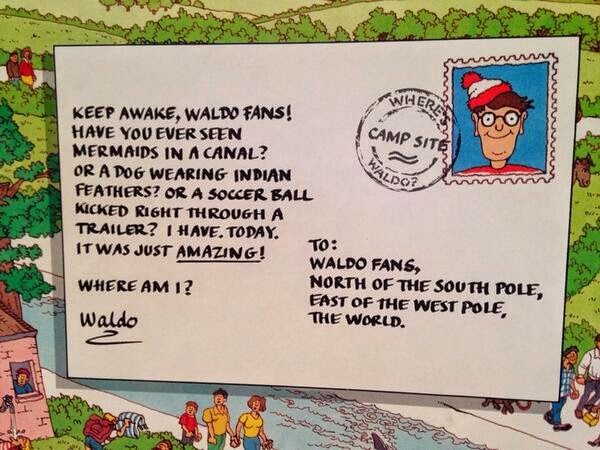 KEEP AWAKE, WALDO FANS!
HAVE YOU EVER SEEN
MERMAIDS IN A CANAL?
OR A DOG WEARING INDIAN
FEATHERS? OR A SOCCER BALL
KICKED RIGHT THROUGH A
TRAILER? I HAVE. TODAY.
IT WAS JUST AMAZING!
WHERE AM I?
Waldo
WHERE'S
CAMP SITE
WALDO?
TO:
WALDO FANS,
NORTH OF THE SOUTH POLE,
EAST OF THE WEST POLE,
THE WORLD.